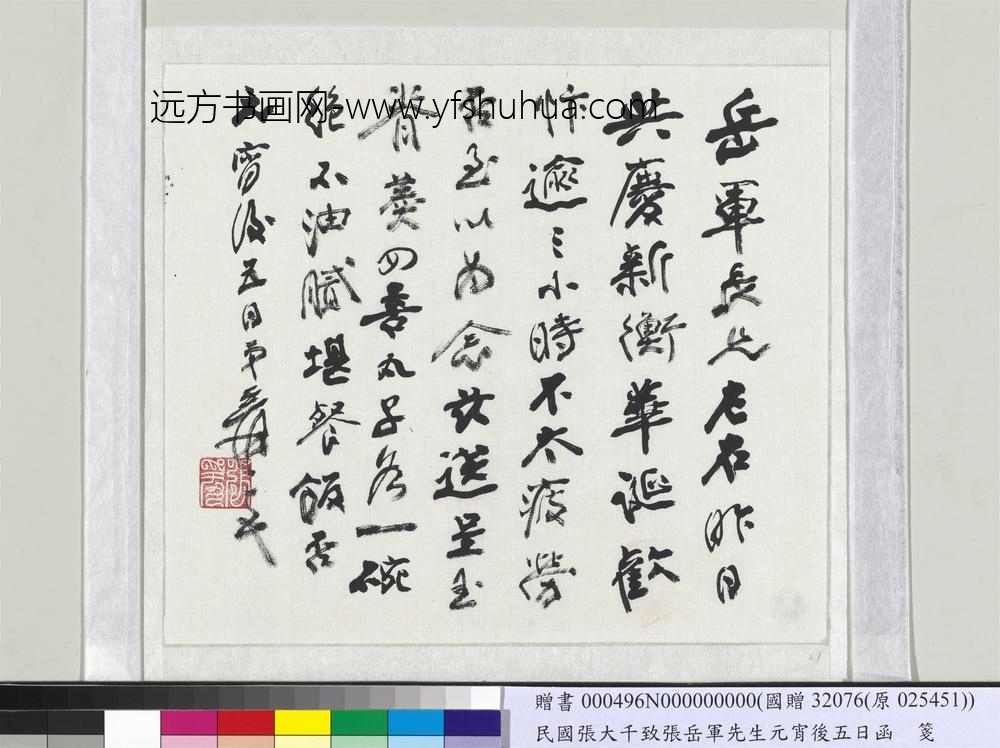 岳軍長兄左右昨日
共慶新衡華誕歡
忭逾三小時不太疲勞
否至以為念茲送呈玉
脊羹四喜丸子各一碗
絕不油膩堪餐飯否
元宵後五日弟爰
远方书画网-www.yfshuhua.com
贈書 000496N000000000(國贈 32076(原 025451))
民國張大千致張岳軍先生元宵後五日函 箋